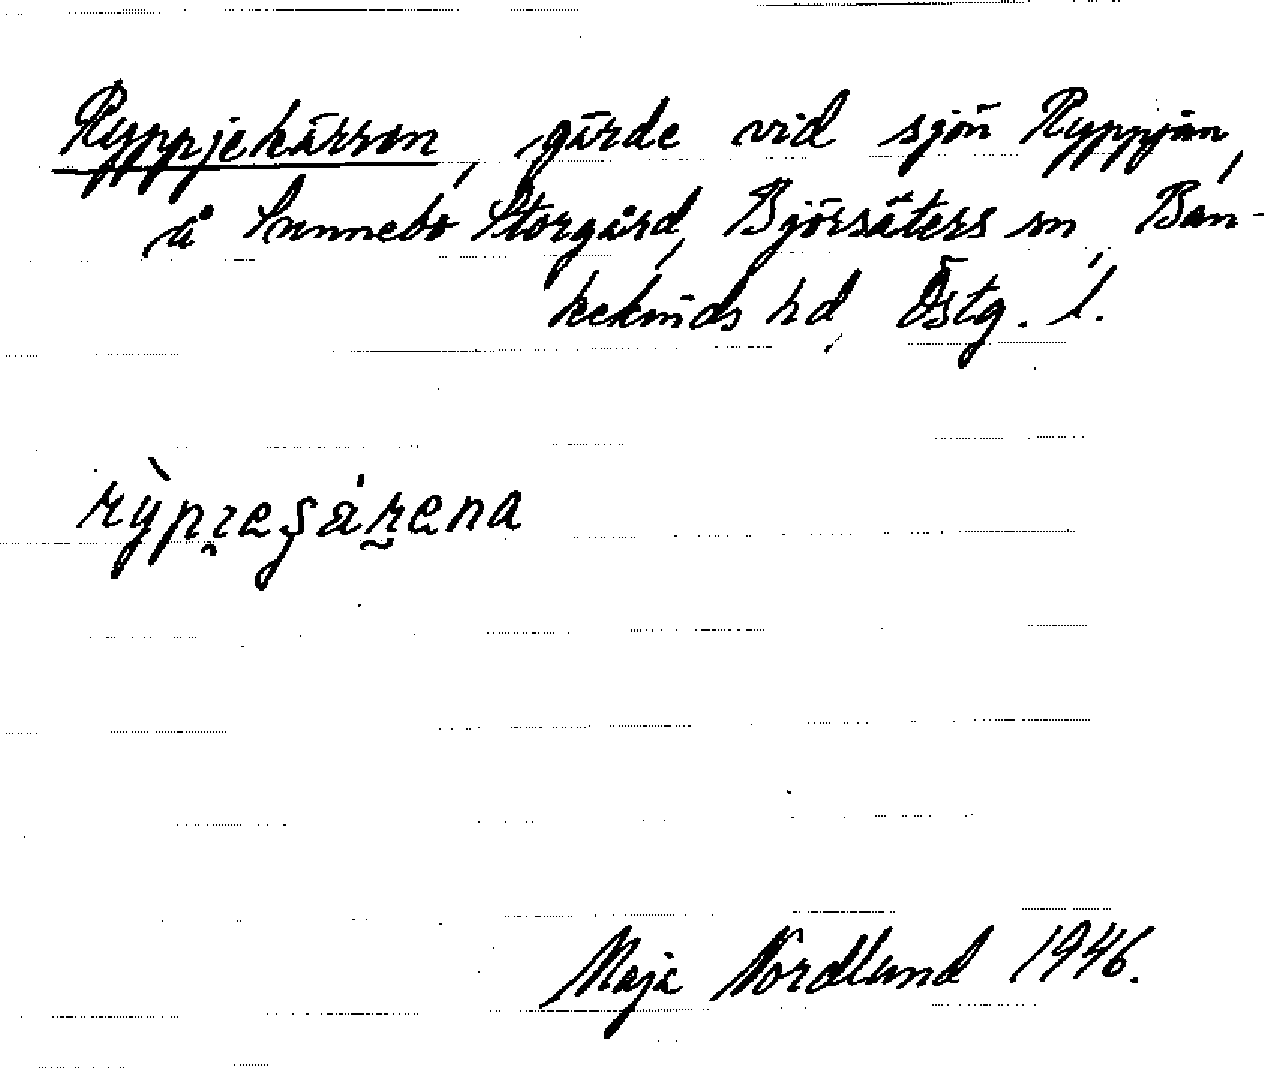 Ryppjekärren, gärde vid sjön Ryppjän,
å Sunnebo Storgård, Björsäters sn, Ban-
kekinds hd, Östg. l.
Maja Nordlund 1946.